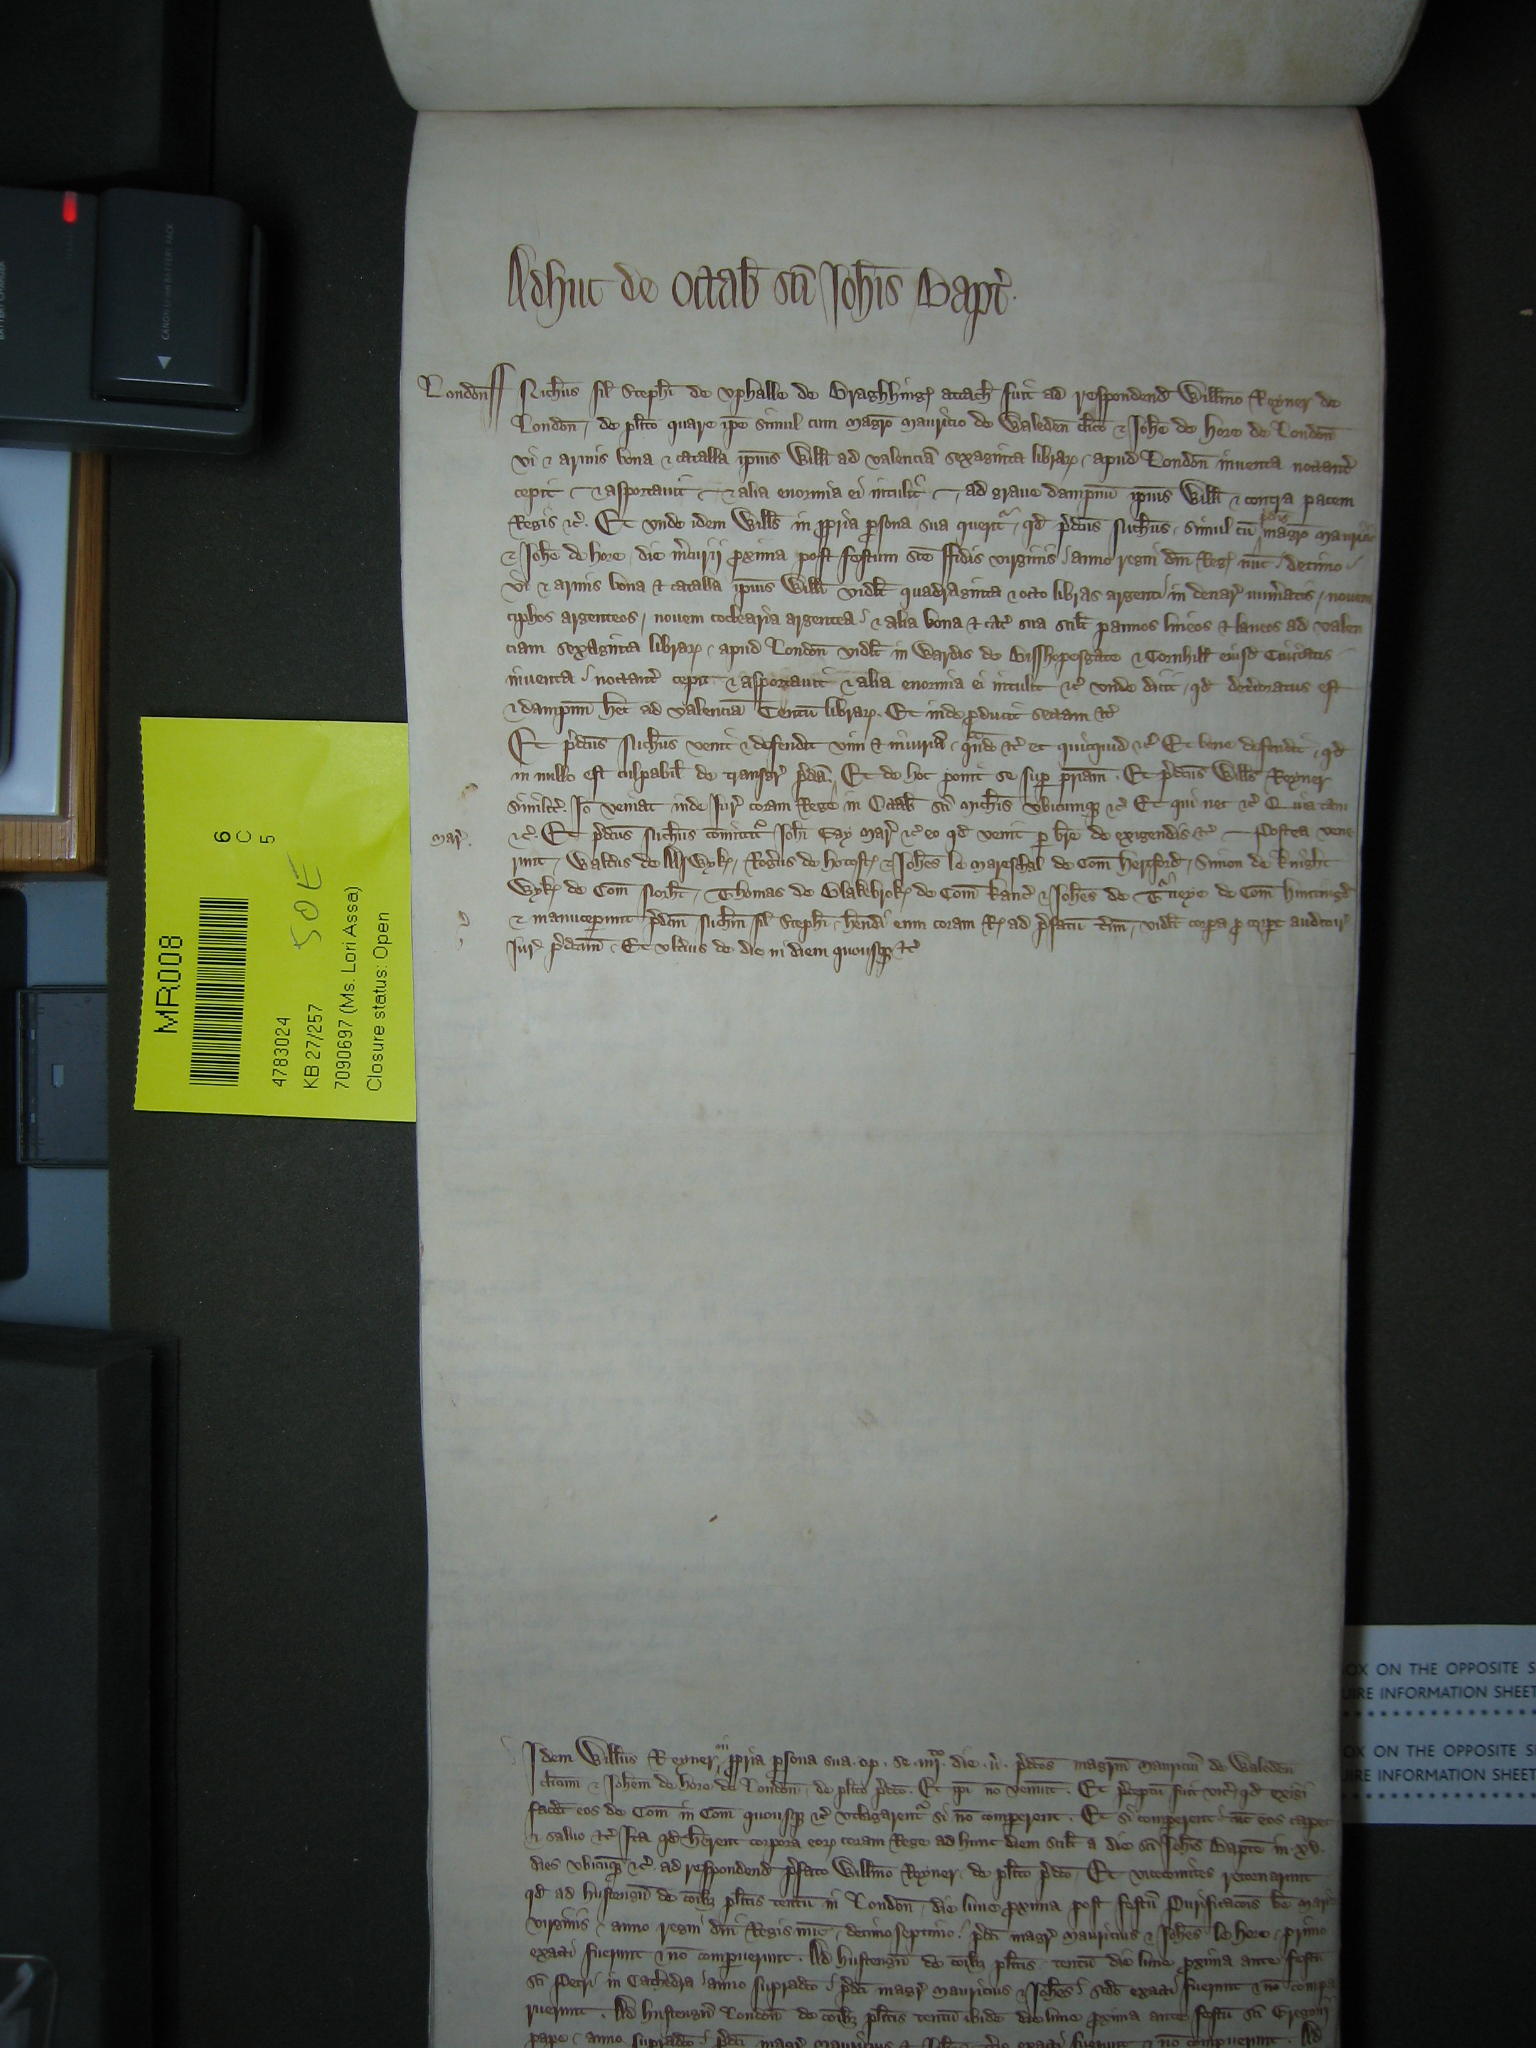 Adhuc de Octab sci Johis Bapt
London ss Nichus fil Stephi de Uphalle de Braghhing attach fuit ad respondend Willmo Reyner de
London de plito quare ipe simul cum magro Mauricio de Waleden clico & Johe de Hore de London
vi & armis bona & catalla ipius Willi ad valencia sexaginta librar apud London inventa noctant
cepit & asportavit & alia enormia ei intulit ad grave dampnu ipius Willi & contra pacem
Regis &c. Et unde idem Wills in ppria psona sua querit qd pdcus Nichus simul cu magro Mauricio
& Johe de Hore die mcurii proxima post festum sce Fidis virginis anno regni dni Reg nuc decimo
vi & armis bona & catalla ipius Willi videlt quadraginta & octo libras argenti in denar numatis novem
ciphos argenteos novem coclearia argentea & alia bona & cat sua scilt pannos lineos & laneos ad valen
ciam sexaginta librar apud London videlt in Wardis de Bisshopesgate & Cornhill eiusd Civitatis
inventa noctant cepit & asportavit & alia enormia ei intulit &c unde dicit qd deterioratus est
& dampnum het ad valencia Centu librar. Et inde producit sectam &c
Et pdcus Nichus venit & defendit vim & iniuria qndo &c et quicquid &c Et bene defendit qd
in nullo est culpabil de transgr pdca Et de hoc ponit se sup priam. Et pdcus Wills Reyner
similit. Io veniat inde Jur coram Rege in Octab sci Michis ubicumq &c Et qui nec &c Quia tam
mar. &c. Et pdcus Nichus comittit Johi Cay mar &c eo qd venit p bre de exigendis &c Postea vene
runt Rogus de & Johes le Mareschal de Com Hertford Simon de Knight
Wyk de Com Norht Thomas de Blakebrok de Com Kanc & Johes de de Com Huntingd
& manuceperunt pdcm Nichm fil Stephi hendi eum coram R ad pfatu tim videlt corpa p corpe auditur
Jur pdcam. Et ultius de die in diem quousq &c
Idem Willus Reyner in ppria psona sua op se iiii die v. pdcos magrm Mauriciu de Waleden
clicum & Johem de Hore de London de plito pdco. Et ipi no veniut. Et pceptu fuit vic qd exigi
facet eos de Com in Com quousq &c utlagarent si no comperent. Et si comperent tuc eos capet
& salvo &c Ita qd herent corpora eor coram Rege ad hunc diem scilt a die sci Johis Bapte in xv.
dies ubicuq &c ad respondend pfato Willmo Reyner de plito pdco Et vicecomites retornarunt
qd ad Hustengu de coib plitis tentu in London die lune proxima post festu Purificacois be Marie
virginis anno regni dni Regis nunc decimoseptimo pdci magr Mauricius & Johes le Hore primo
exacti fuerunt & no compuerunt. Ad Hustengu de coib plitis tentu die lune proxima ante festu
sci Petri in Cathedra anno supradco pdci magr Mauricius & Johes scdo exacti fuerunt & no compa
ruerunt. Ad Hustengu London de coib plitis tentu ibide die lune proxima ante festu sci Gregorii
pape anno supradco pdci magr Mauricius & Johes exacti fuerunt & no compuerunt. Ad
MR008
6
C
5
50E
4783024
KB 27/257
7090697 (Ms. Lori Assa)
Closure status: Open
BATTERY CHARGER
CANON LI-ION BATTERY PACK
OX ON THE OPPOSITE S
UIRE INFORMATION SHEET
OX ON THE OPPOSITE S
UIRE INFORMATION SHEET